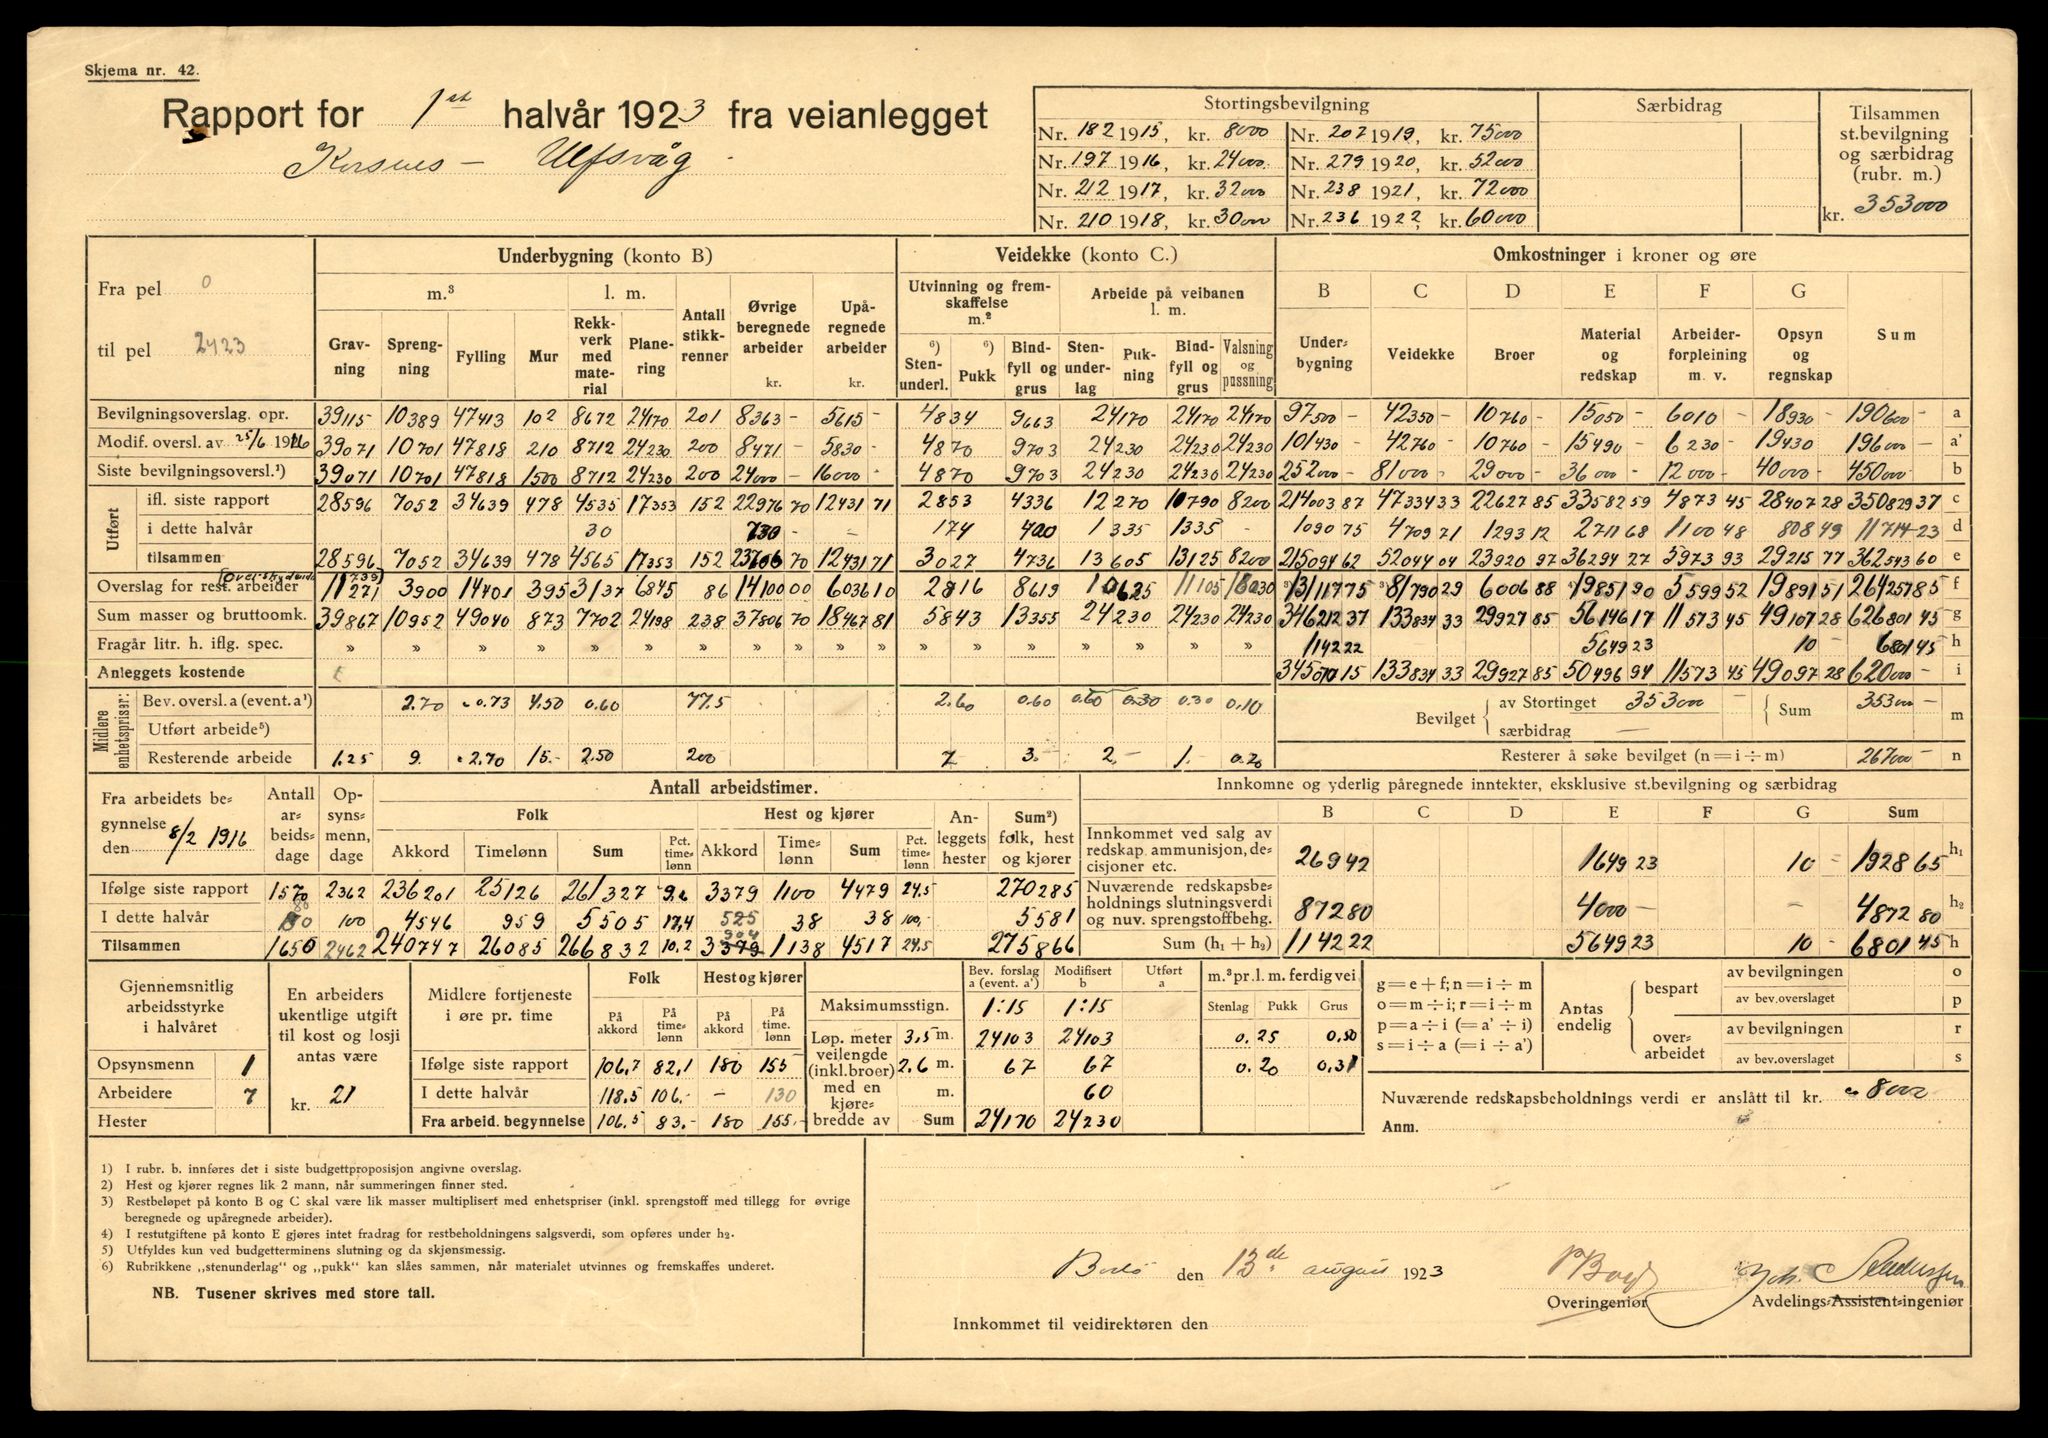 Skjema nr. 42.
Rapport for 1st halvår 1923 fra veianlegget
Korsnes – Ulfsvåg.
Stortingsbevilgning
Særbidrag
Tilsammen st.bevilgning og særbidrag (rubr. m.)
kr. 353000
Nr. 182 1915, kr. 8000 Nr. 207 1919, kr. 75000
Nr. 197 1916, kr. 24000 Nr. 279 1920, kr. 52000
Nr. 212 1917, kr. 32000 Nr. 238 1921, kr. 72000
Nr. 210 1918, kr. 30000 Nr. 236 1922, kr. 60000
Fra pel 0
til pel 2423
Underbygning (konto B) Veidekke (konto C.) Omkostninger i kroner og øre
m.³ l. m. Antall stikkrenner Øvrige beregnede arbeider kr. Upåregnede arbeider kr.
Utvinning og fremskaffelse m.² Arbeide på veibanen l. m.
B C D E F G
Gravning Sprengning Fylling Mur Rekkverk med material Planering
6) Stenunderl. 6) Pukk Bindfyll og grus Stenunderlag Pukning Bindfyll og grus Valsning og pussning
Underbygning Veidekke Broer Material og redskap Arbeiderforpleining m. v. Opsyn og regnskap Sum
Bevilgningsoverslag. opr. 39115 10389 47413 102 8672 24170 201 8363 – 5615 – 4834 9663 24170 24170 24170 97500 – 42350 – 10760 – 15050 – 6010 – 18930 – 190600 – a
Modif. oversl. av 25/6 1916 39071 10701 47818 210 8712 24230 200 8471 – 5830 – 4870 9703 24230 24230 24230 101430 – 42760 – 10760 – 15490 – 6230 – 19430 – 196000 – a'
Siste bevilgningsoversl.¹) 39071 10701 47818 1500 8712 24230 200 24000 – 16000 – 4870 9703 24230 24230 24230 252000 – 81000 – 29000 – 36000 – 12000 – 40000 – 450000 – b
Utført
ifl. siste rapport 28596 7052 34639 478 4535 17353 152 22976 70 12431 71 2853 4336 12270 10790 8200 214003 87 47334 33 22627 85 33582 59 4873 45 28407 28 350829 37 c
i dette halvår 30 730 – 174 400 1335 1335 – 1090 75 4709 71 1293 12 2711 68 1100 48 808 49 11714 23 d
tilsammen 28596 7052 34639 478 4565 17353 152 23706 70 12431 71 3027 4736 13605 13125 8200 215094 62 52044 04 23920 97 36294 27 5973 93 29215 77 362543 60 e
Overslag for rest. arbeider 11271 3900 14401 395 3137 6845 86 14100 00 6036 10 2816 8619 10625 11105 16030 ³) 131117 75 ³) 81790 29 6006 88 ⁴) 19851 90 5599 52 19891 51 264257 85 f
Sum masser og bruttoomk. 39867 10952 49040 873 7702 24198 238 37806 70 18467 81 5843 13355 24230 24230 24230 346212 37 133834 33 29927 85 56146 17 11573 45 49107 28 626801 45 g
Fragår litr. h. iflg. spec. » » » » » » » » » » » » » » » » » » 1142 22 5649 23 10 – 6801 45 h
Anleggets kostende 345070 15 133834 33 29927 85 50496 94 11573 45 49097 28 620000 – i
Midlere enhetspriser:
Bev. oversl. a (event. a¹) 2.70 0.73 4.50 0.60 77.5 2.60 0.60 0.60 0.30 0.30 0.10
Utført arbeide⁵)
Resterende arbeide 1.25 9. 2.70 15.- 2.50 200 7 3.- 2.- 1.- 0.20
Bevilget av Stortinget 353000 særbidrag — Sum 353000 – m
Resterer å søke bevilget (n=i÷m) 267000 – n
Fra arbeidets begynnelse den 8/2 1916
Antall arbeidsdage Opsynsmenn, dage
Antall arbeidstimer.
Folk Hest og kjører Anleggets hester Sum²) folk, hest og kjører
Akkord Timelønn Sum Pct. timelønn Akkord Timelønn Sum Pct. timelønn
Ifølge siste rapport 1570 2362 236201 25126 261327 9,6 3379 1100 4479 24,5 270285
I dette halvår 80 100 4546 959 5505 17,4 525 38 38 100,- 5581
Tilsammen 1650 2462 240747 26085 266832 10,2 3379 1138 4517 24,5 275866
Innkomne og yderlig påregnede inntekter, eksklusive st.bevilgning og særbidrag
B C D E F G Sum
Innkommet ved salg av redskap, ammunisjon, decisjoner etc. 269 42 1649 23 10 – 1928 65 h₁
Nuværende redskapsbeholdnings slutningsverdi og nuv. sprengstoffbehg. 872 80 4000 – – 4872 80 h₂
Sum (h₁ + h₂) 1142 22 5649 23 10 – 6801 45 h
Gjennemsnitlig arbeidsstyrke i halvåret
Opsynsmenn 1
Arbeidere 7
Hester
En arbeiders ukentlige utgift til kost og losji antas være
kr. 21
Midlere fortjeneste i øre pr. time
Folk Hest og kjører
På akkord På timelønn På akkord På time. lønn
Ifølge siste rapport 106,7 82,1 180 155
I dette halvår 118.5 106.- – 130
Fra arbeid. begynnelse 106,5 83.- 180 155.-
Bev. forslag a (event. a') Modifisert b Utført a
Maksimumsstign. 1:15 1:15
Løp. meter veilengde (inkl. broer) med en kjørebredde av
3,5 m. 24103 24103
2.6 m. 67 67
m. 60
Sum 24170 24230
m.³ pr. l. m. ferdig vei
Stenlag Pukk Grus
0.25 0,50
0.20 0,31
g=e+f; n=i÷m
o=m÷i; r=i÷m
p=a÷i (=a'÷i)
s=i÷a (=i÷a')
Antas endelig
bespart av bevilgningen o
av bev.overslaget p
overarbeidet av bevilgningen r
av bev.overslaget s
Nuværende redskapsbeholdnings verdi er anslått til kr. 8000
Anm.
1) I rubr. b. innføres det i siste budgettproposisjon angivne overslag.
2) Hest og kjører regnes lik 2 mann, når summeringen finner sted.
3) Restbeløpet på konto B og C skal være lik masser multiplisert med enhetspriser (inkl. sprengstoff med tillegg for øvrige
beregnede og upåregnede arbeider).
4) I restutgiftene på konto E gjøres intet fradrag for restbeholdningens salgsverdi, som opføres under h₂.
5) Utfyldes kun ved budgetterminens slutning og da skjønsmessig.
6) Rubrikkene „stenunderlag" og „pukk" kan slåes sammen, når materialet utvinnes og fremskaffes underet.
NB. Tusener skrives med store tall.
Bodø den 13de august 1923
Overingeniør Avdelings-Assistent-ingeniør
Innkommet til veidirektøren den